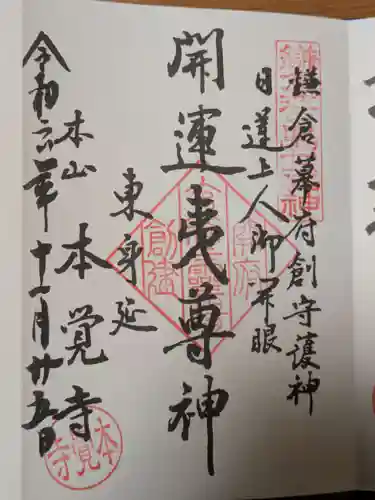 鎌倉幕府創守護神
日蓮上人御開眼
開運夷尊神
東身延
本山 本覺寺
令和六年十一月廿五日
本覺寺